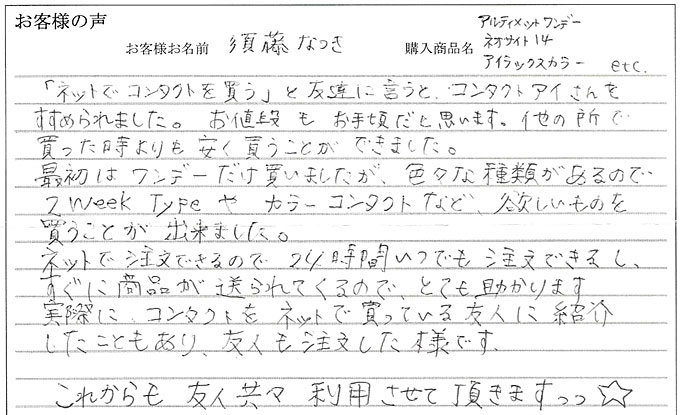 お客様の声
お客様お名前 須藤なつき 購入商品名 アルティメットワンデー
ネオサイト14
アイラックスカラー etc.
「ネットでコンタクトを買う」と友達に言うと、コンタクトアイさんを
すすめられました。お値段もお手頃だと思います。他の所で
買った時よりも安く買うことができました。
最初はワンデーだけ買いましたが、色々な種類があるので
2week Typeやカラーコンタクトなど、欲しいものを
買うことが出来ました。
ネットで注文できるので24時間いつでも注文できるし、
すぐに商品が送られてくるので、とても助かります
実際に、コンタクトをネットで買っている友人に紹介
したこともあり、友人も注文した様です。
これからも友人共々利用させて頂きますっっ☆